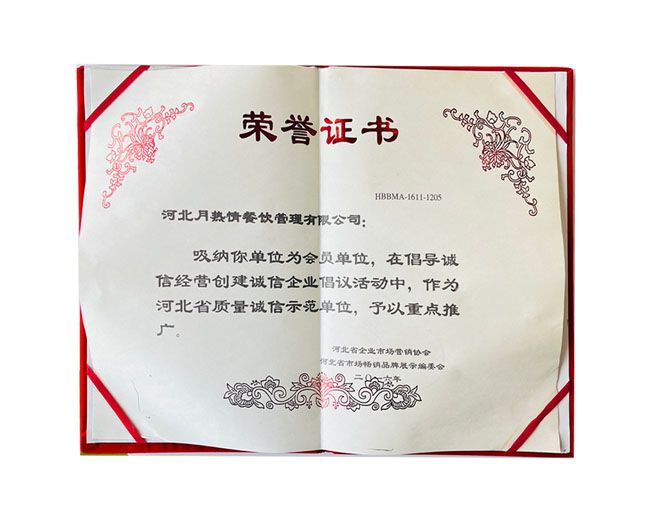 荣誉证书
HBBMA-1611-1205
河北月热情餐饮管理有限公司：
吸纳你单位为会员单位，在倡导诚
信经营创建诚信企业倡议活动中，作为
河北省质量诚信示范单位，予以重点推
广。
河北省企业市场营销协会
河北省市场畅销品牌展示编委会
二〇一六年